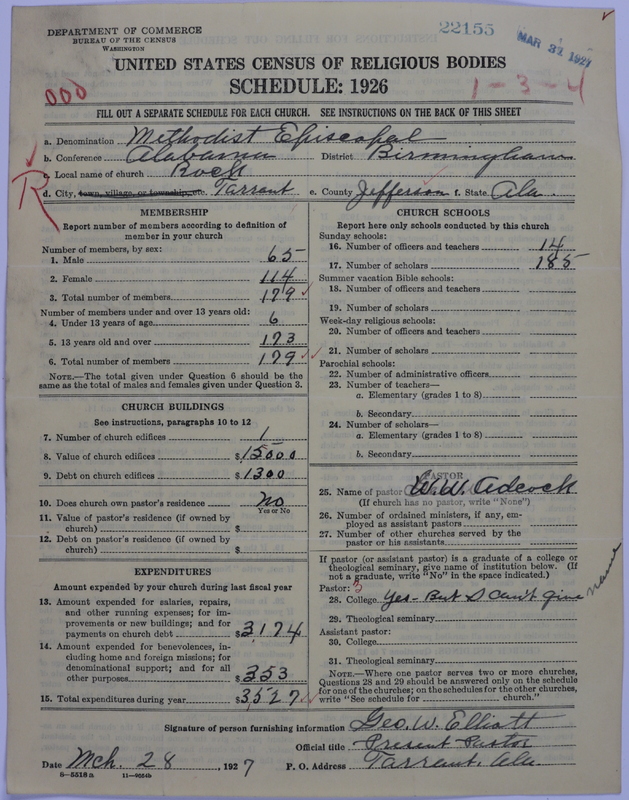 DEPARTMENT OF COMMERCE
BUREAU OF THE CENSUS
WASHINGTON
22155
MAR 31 1927
UNITED STATES CENSUS OF RELIGIOUS BODIES
SCHEDULE: 1926
000
1-3-4
FILL OUT A SEPARATE SCHEDULE FOR EACH CHURCH. SEE INSTRUCTIONS ON THE BACK OF THIS SHEET
a. Denomination Methodist Episcopal
b. Conference Alabama District Birmingham
c. Local name of church Rock
d. City, town, village, or township, etc. Tarrant e. County Jefferson f. State Ala.
R
MEMBERSHIP
Report number of members according to definition of
member in your church
Number of members, by sex:
1. Male 65
2. Female 114
3. Total number of members 179
Number of members under and over 13 years old:
4. Under 13 years of age 6
5. 13 years old and over 173
6. Total number of members 179
NOTE.—The total given under Question 6 should be
same as the total of males and females given under Question 3.
CHURCH BUILDINGS
See instructions, paragraphs 10 to 12
7. Number of church edifices 1
8. Value of church edifices $15000
9. Debt on church edifices $1300
10. Does church own pastor's residence No
Yes or No
11. Value of pastor's residence (if owned by
church) $
12. Debt on pastor's residence (if owned by
church) $
EXPENDITURES
Amount expended by your church during last fiscal year
13. Amount expended for salaries, repairs,
and other running expenses; for im-
provements or new buildings; and for
payments on church debt $3174
14. Amount expended for benevolences, in-
cluding home and foreign missions; for
denominational support; and for all
other purposes $353
15. Total expenditures during year $3527
CHURCH SCHOOLS
Report here only schools conducted by this church
Sunday schools:
16. Number of officers and teachers 14
17. Number of scholars 185
Summer vacation Bible schools:
18. Number of officers and teachers
19. Number of scholars
Week-day religious schools:
20. Number of officers and teachers
21. Number of scholars
Parochial schools:
22. Number of administrative officers
23. Number of teachers—
a. Elementary (grades 1 to 8)
b. Secondary
24. Number of scholars—
a. Elementary (grades 1 to 8)
b. Secondary
PASTOR
25. Name of pastor W.W. Adcock
(If church has no pastor, write "None")
26. Number of ordained ministers, if any, em-
ployed as assistant pastors
27. Number of other churches served by the
pastor or his assistants
If pastor (or assistant pastor) is a graduate of a college or
theological seminary, give name of institution below. (If
not a graduate, write "No" in the space indicated.)
Pastor: 3
28. College Yes - But I can't give name
29. Theological seminary
Assistant pastor:
30. College
31. Theological seminary
NOTE.—Where one pastor serves two or more churches,
Questions 28 and 29 should be answered only on the schedule
for one of the churches; on the schedules for the other churches,
write "See schedule for church."
Signature of person furnishing information Geo. W. Elliott
Official title Present Pastor
Date Mch. 28, 1927 P. O. Address Tarrant, Ala.
8-5518a 11-9054b